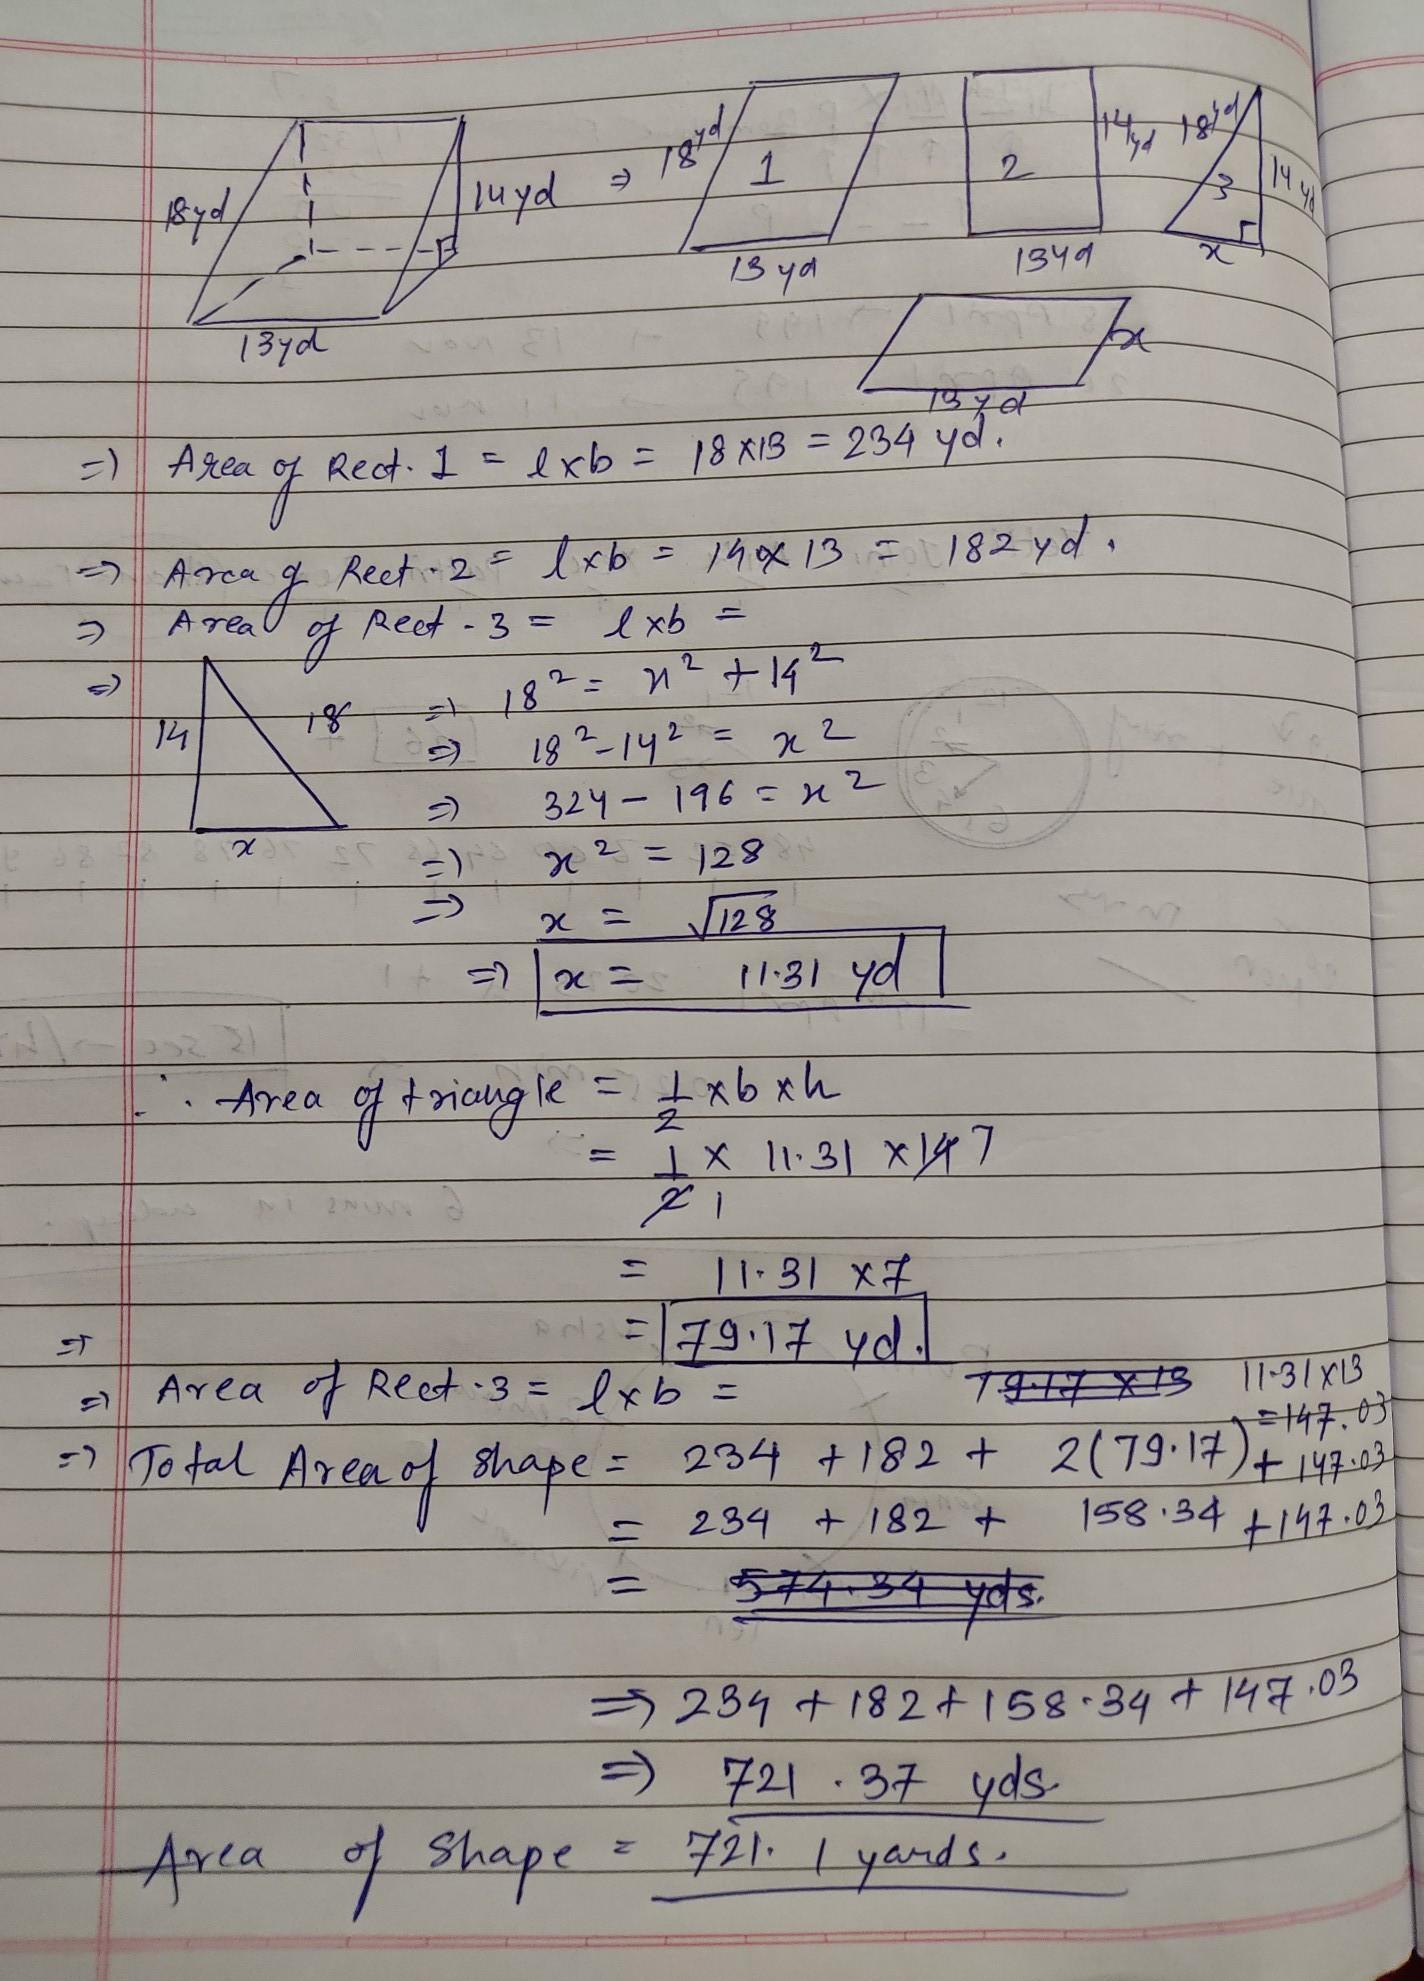 18yd 14yd ⇒ 18yd 1 2 14yd 18yd 3 14 yd
13yd 13yd 13yd x
x
13yd
⇒ Area of Rect. 1 = l×b = 18×13 = 234 yd.
⇒ Area of Rect. 2 = l×b = 14×13 = 182 yd.
⇒ Area of Rect - 3 = l×b =
⇒ 14 18 x
⇒ 18² = x² + 14²
⇒ 18² - 14² = x²
⇒ 324 - 196 = x²
⇒ x² = 128
⇒ x = √128
⇒ x = 11.31 yd
∴ Area of triangle = 1/2 × b × h
= 1/2 × 11.31 × 14 7
1
= 11.31 × 7
= 79.17 yd.
⇒
⇒ Area of Rect. 3 = l×b = 79.17 × 13 11.31×13
= 147.03
⇒ Total Area of shape = 234 + 182 + 2(79.17) + 147.03
= 234 + 182 + 158.34 + 147.03
= 574.34 yds.
⇒ 234 + 182 + 158.34 + 147.03
⇒ 721.37 yds.
Area of Shape = 721.1 yards.